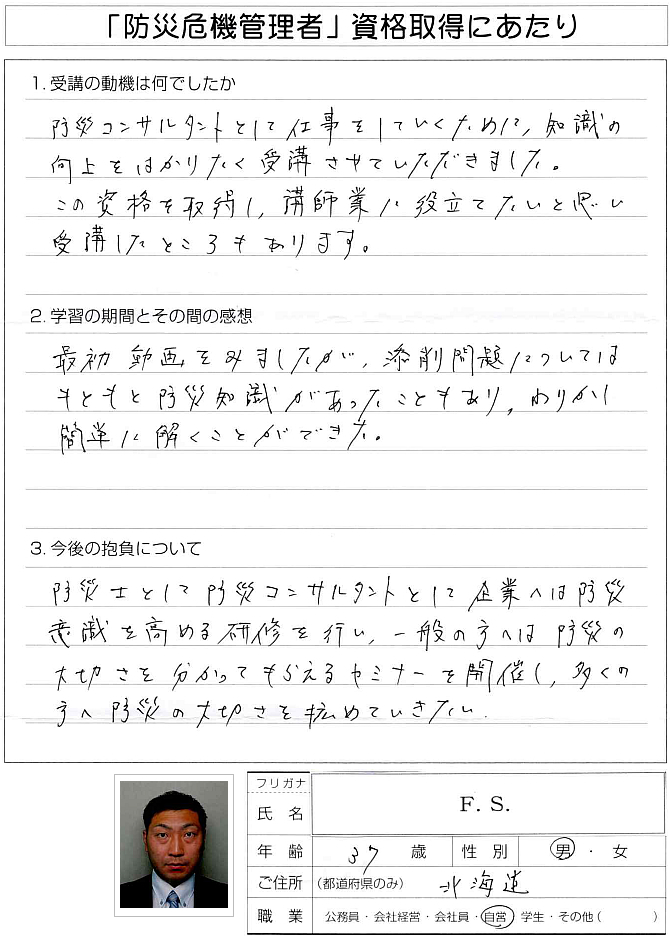 「防災危機管理者」資格取得にあたり
1. 受講の動機は何でしたか
防災コンサルタントとして仕事をしていくために、知識の
向上をはかりたく受講させていただきました。
この資格を取得し、講師業に役立てたいと思い
受講したところもあります。
2. 学習の期間とその間の感想
最初動画をみましたが、添削問題については
もともと防災知識があったこともあり、わりかし
簡単に解くことができた。
3. 今後の抱負について
防災士として防災コンサルタントとして企業へは防災
意識を高める研修を行い、一般の方へは防災の
大切さを分かってもらえるセミナーを開催し、多くの
方へ防災の大切さを広めていきたい.
フリガナ
氏名 F. S.
年齢 37 歳 性別 男・女
ご住所 (都道府県のみ) 北海道
職業 公務員・会社経営・会社員・自営 学生・その他 ( )